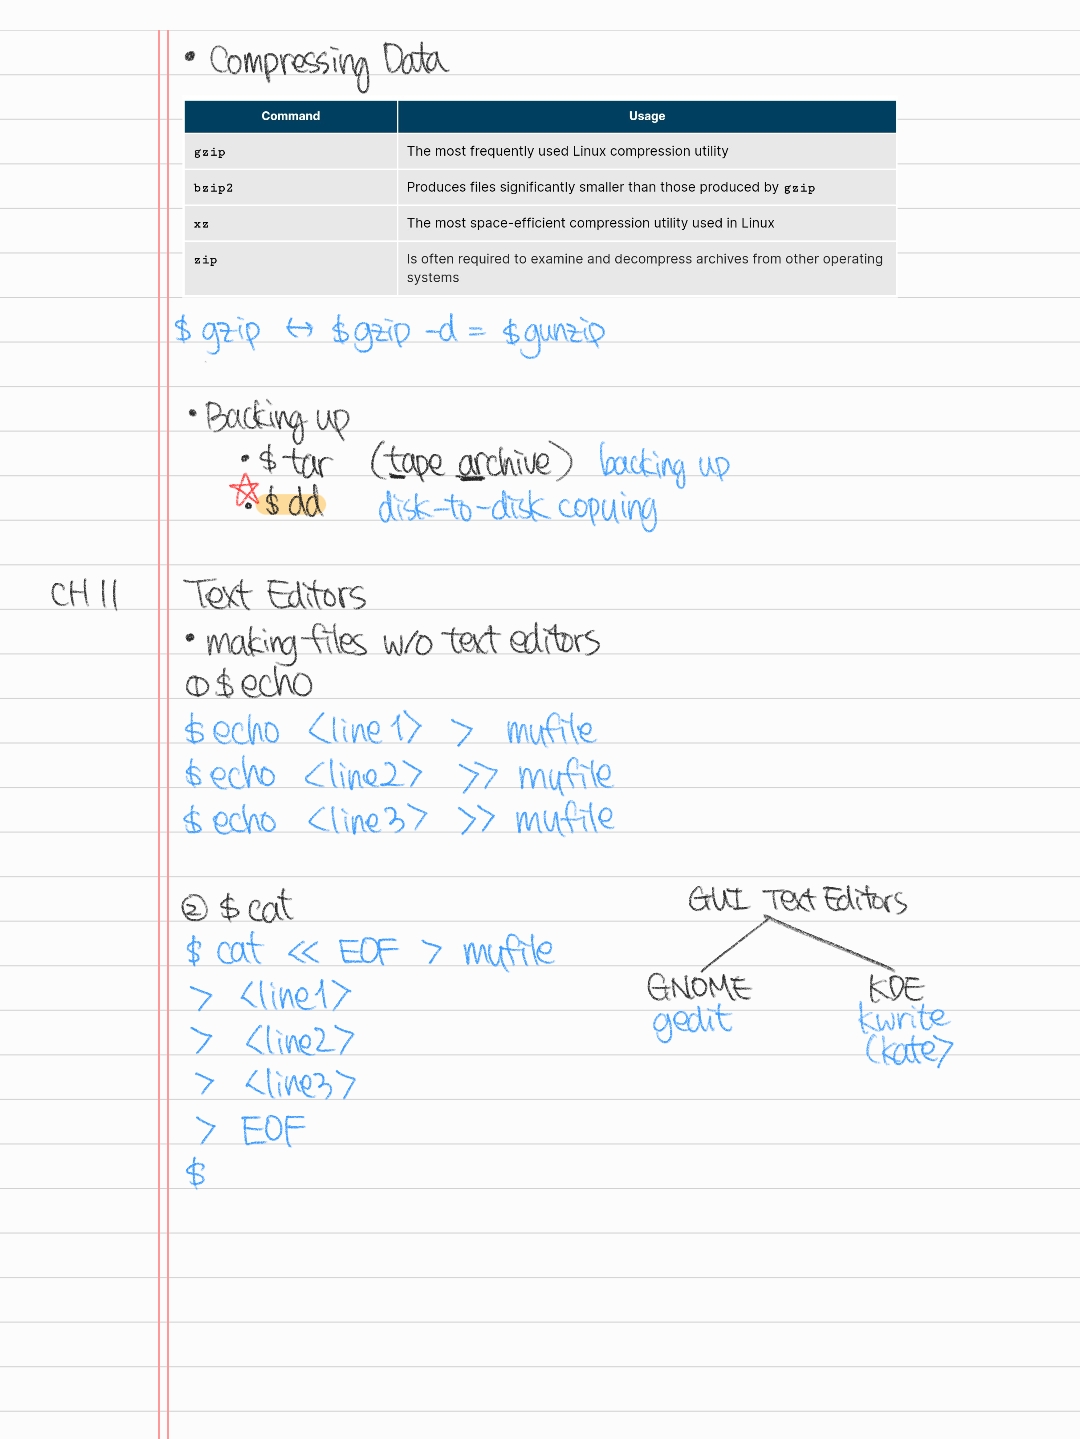 • Compressing Data
Command Usage
gzip The most frequently used Linux compression utility
bzip2 Produces files significantly smaller than those produced by gzip
xz The most space-efficient compression utility used in Linux
zip Is often required to examine and decompress archives from other operating
systems
$ gzip ↔ $ gzip -d = $ gunzip
• Backing up
• $ tar (tape archive) backing up
☆• $ dd disk-to-disk copying
CH 11 Text Editors
• making files w/o text editors
① $ echo
$ echo <line1> > myfile
$ echo <line2> >> myfile
$ echo <line3> >> myfile
② $ cat
$ cat << EOF > myfile
> <line1>
> <line2>
> <line3>
> EOF
$
GUI Text Editors
GNOME KDE
gedit kwrite
(kate>